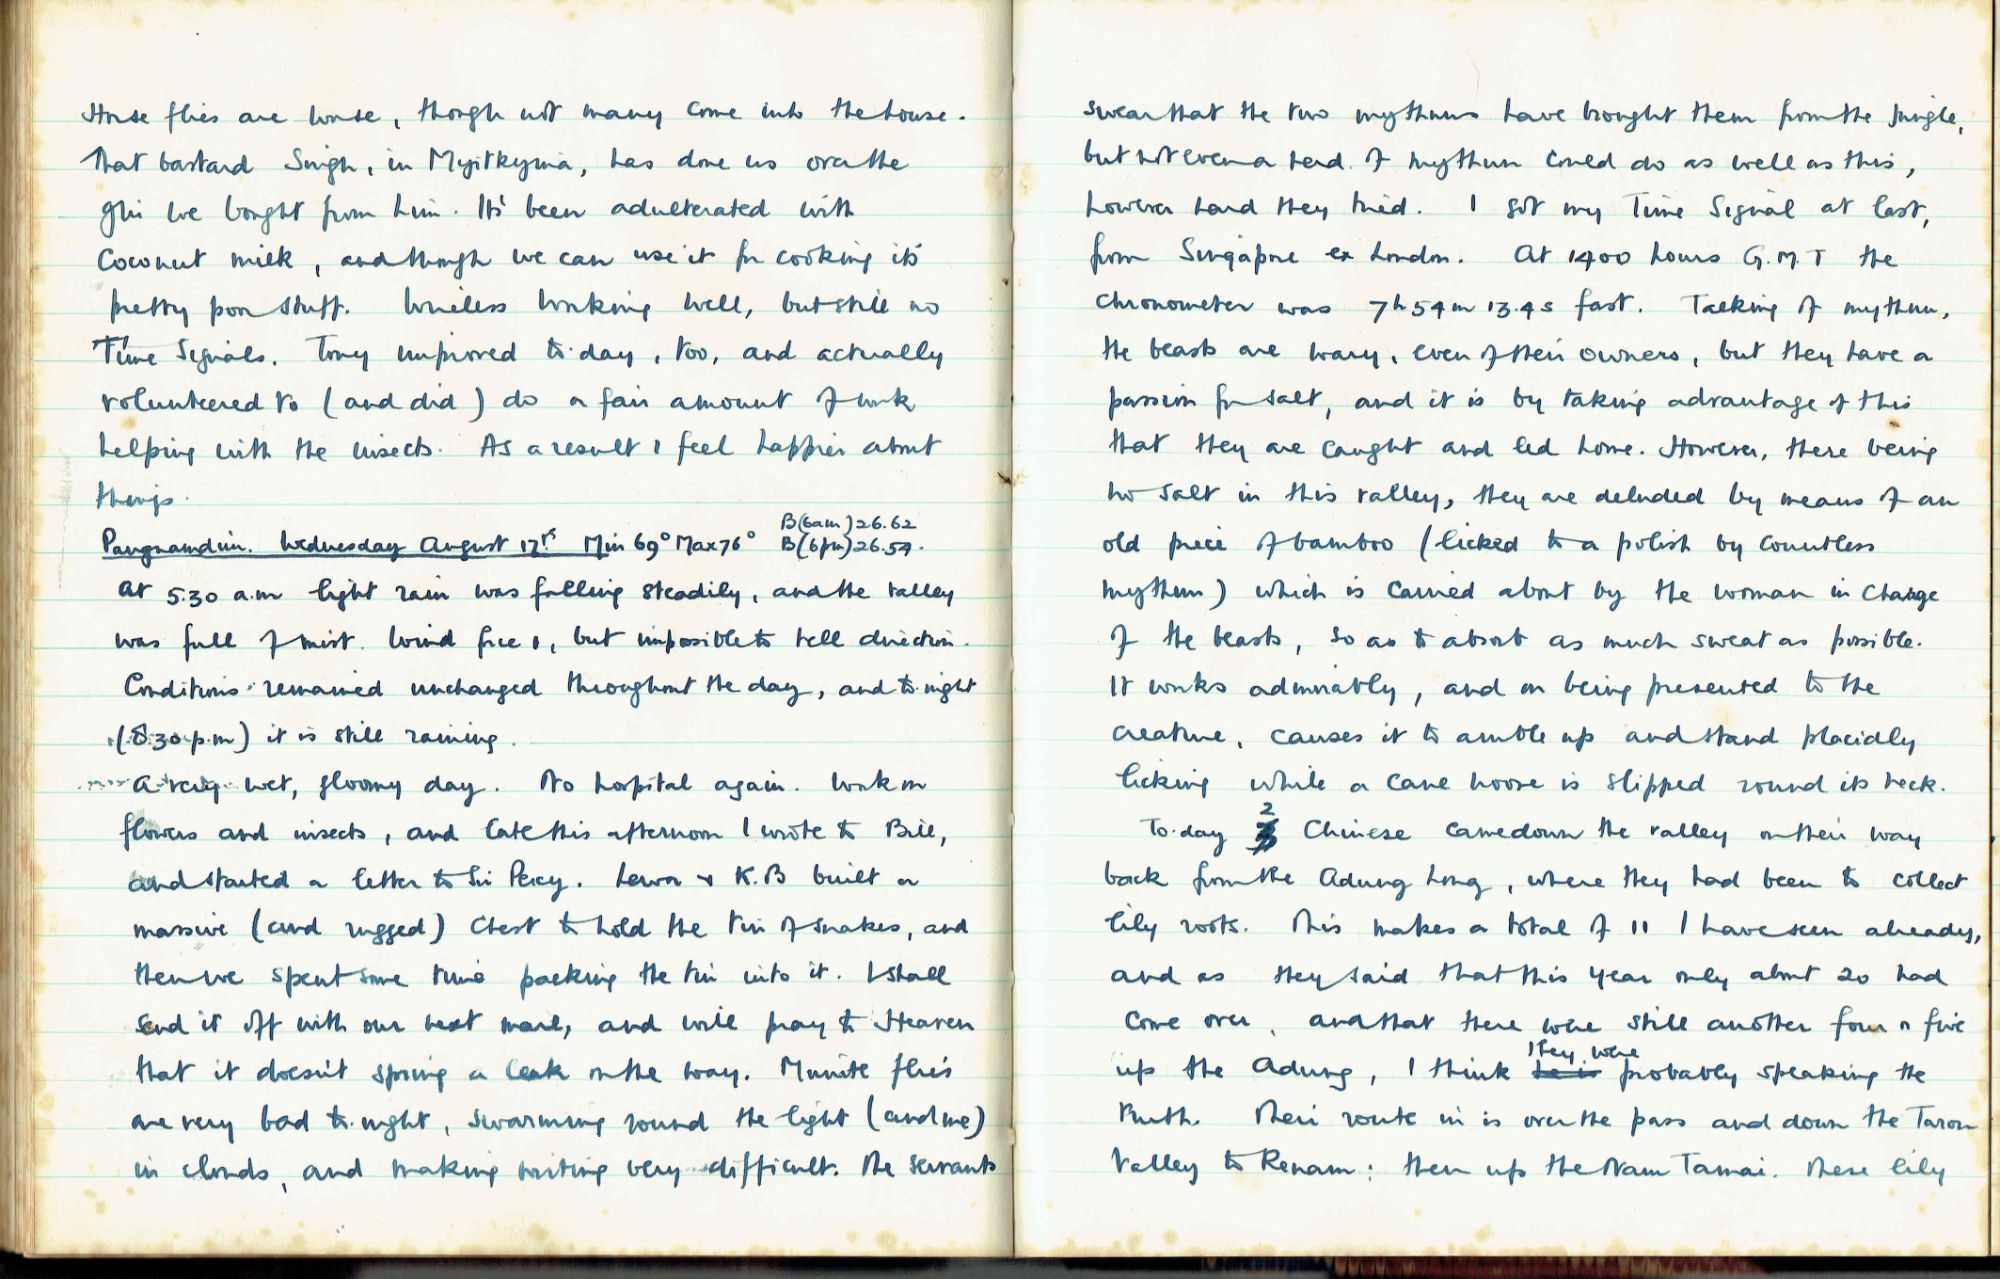 Horse flies are worse, though not many come into the house.
That bastard Singh, in Myitkyina, has done us over the
ghi we bought from him. It's been adulterated with
coconut milk, and though we can use it for cooking it's
pretty poor stuff. Wireless working well, but still no
Time Signals. Tony improved to-day, too, and actually
volunteered to (and did) do a fair amount of work
helping with the insects. As a result I feel happier about
things.
Pangnamdim. Wednesday August 17th. Min 69° Max 76° B(6am) 26.62
B(6pm) 26.54.
At 5.30 a.m light rain was falling steadily, and the valley
was full of mist. Wind force 1, but impossible to tell direction.
Conditions remained unchanged throughout the day, and to-night
(8.30 p.m) it is still raining.
A very wet, gloomy day. No hospital again. Work on
flowers and insects, and late this afternoon I wrote to Bill,
and started a letter to Sir Percy. Lewa & K.B built a
massive (and rugged) chest to hold the tin of snakes, and
then we spent some time packing the tin into it. I shall
send it off with our next mail, and will pray to Heaven
that it doesn't spring a leak on the way. Minute flies
are very bad to-night, swarming round the light (and me)
in clouds, and making writing very difficult. The servants
swear that the two mythuns have brought them from the jungle,
but not even a herd of mythun could do as well as this,
however hard they tried. I got my Time Signal at last,
from Singapore ex London. At 1400 hours G.M.T the
chronometer was 7h 54m 13.4s fast. Talking of mythun,
the beasts are wary, even of their owners, but they have a
passion for salt, and it is by taking advantage of this
that they are caught and led home. However, there being
no salt in this valley, they are deluded by means of an
old piece of bamboo (licked to a polish by countless
mythun) which is carried about by the woman in charge
of the beasts, so as to absorb as much sweat as possible.
It works admirably, and on being presented to the
creature, causes it to amble up and stand placidly
licking while a cane noose is slipped round its neck.
To-day 2 Chinese came down the valley on their way
back from the Adung Long, where they had been to collect
lily roots. This makes a total of 11 I have seen already,
and as they said that this year only about 20 had
come over, and that there were still another four or five
up the Adung, I think they were probably speaking the
truth. Their route in is over the pass and down the Taron
Valley to Renam; then up the Nam Tamai. These lily